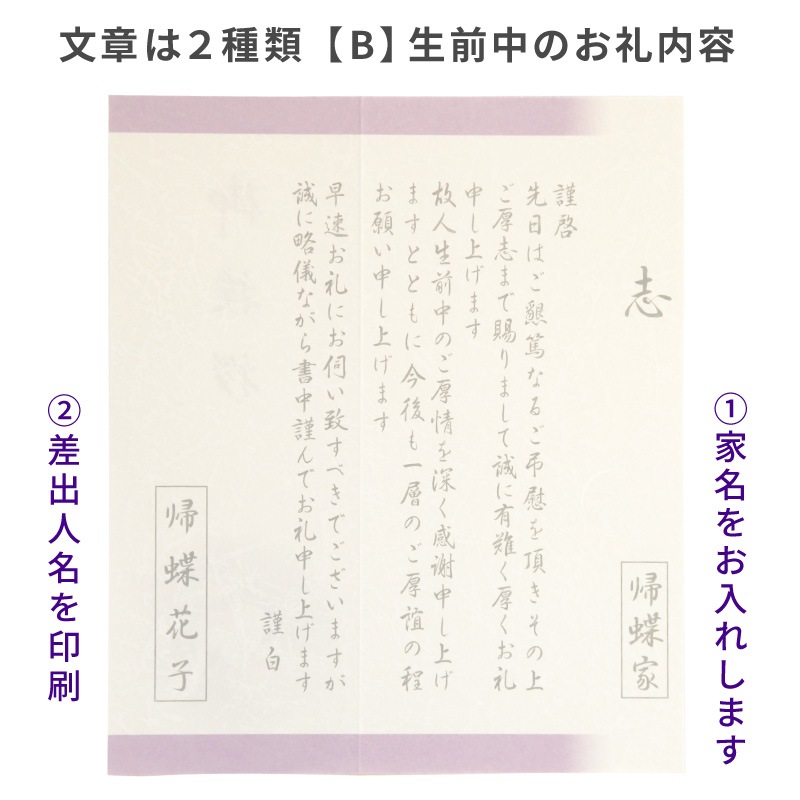 文章は２種類【B】生前中のお礼内容
①家名をお入れします
志
帰蝶家
謹啓
先日はご懇篤なるご弔慰を頂きその上
ご厚志まで賜りまして誠に有難く厚くお礼
申し上げます
故人生前中のご厚情を深く感謝申し上げ
ますとともに今後も一層のご厚誼の程
お願い申し上げます
早速お礼にお伺い致すべきでございますが
誠に略儀ながら書中謹んでお礼申し上げます
謹白
帰蝶花子
②差出人名を印刷